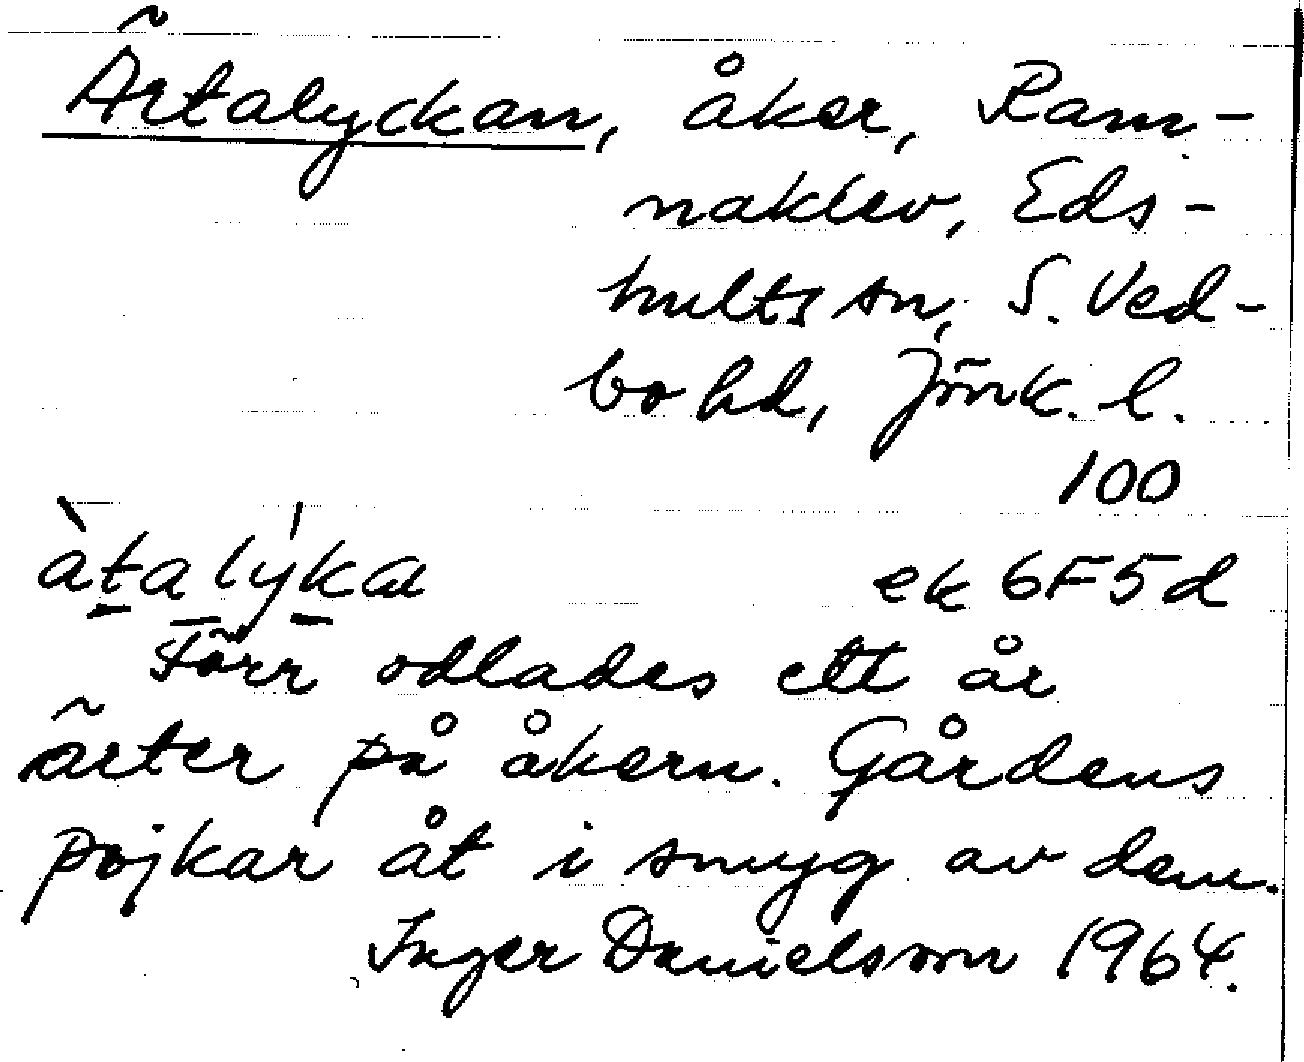 Ärtalyckan, åker, Ram-
naklev, Eds-
hults sn, S. Ved-
bo hd, Jönk. l.
100
àtalýka ek 6F5d
Förr odlades ett år
ärter på åkern. Gårdens
pojkar åt i smyg av dem.
Inger Danielsson 1964.